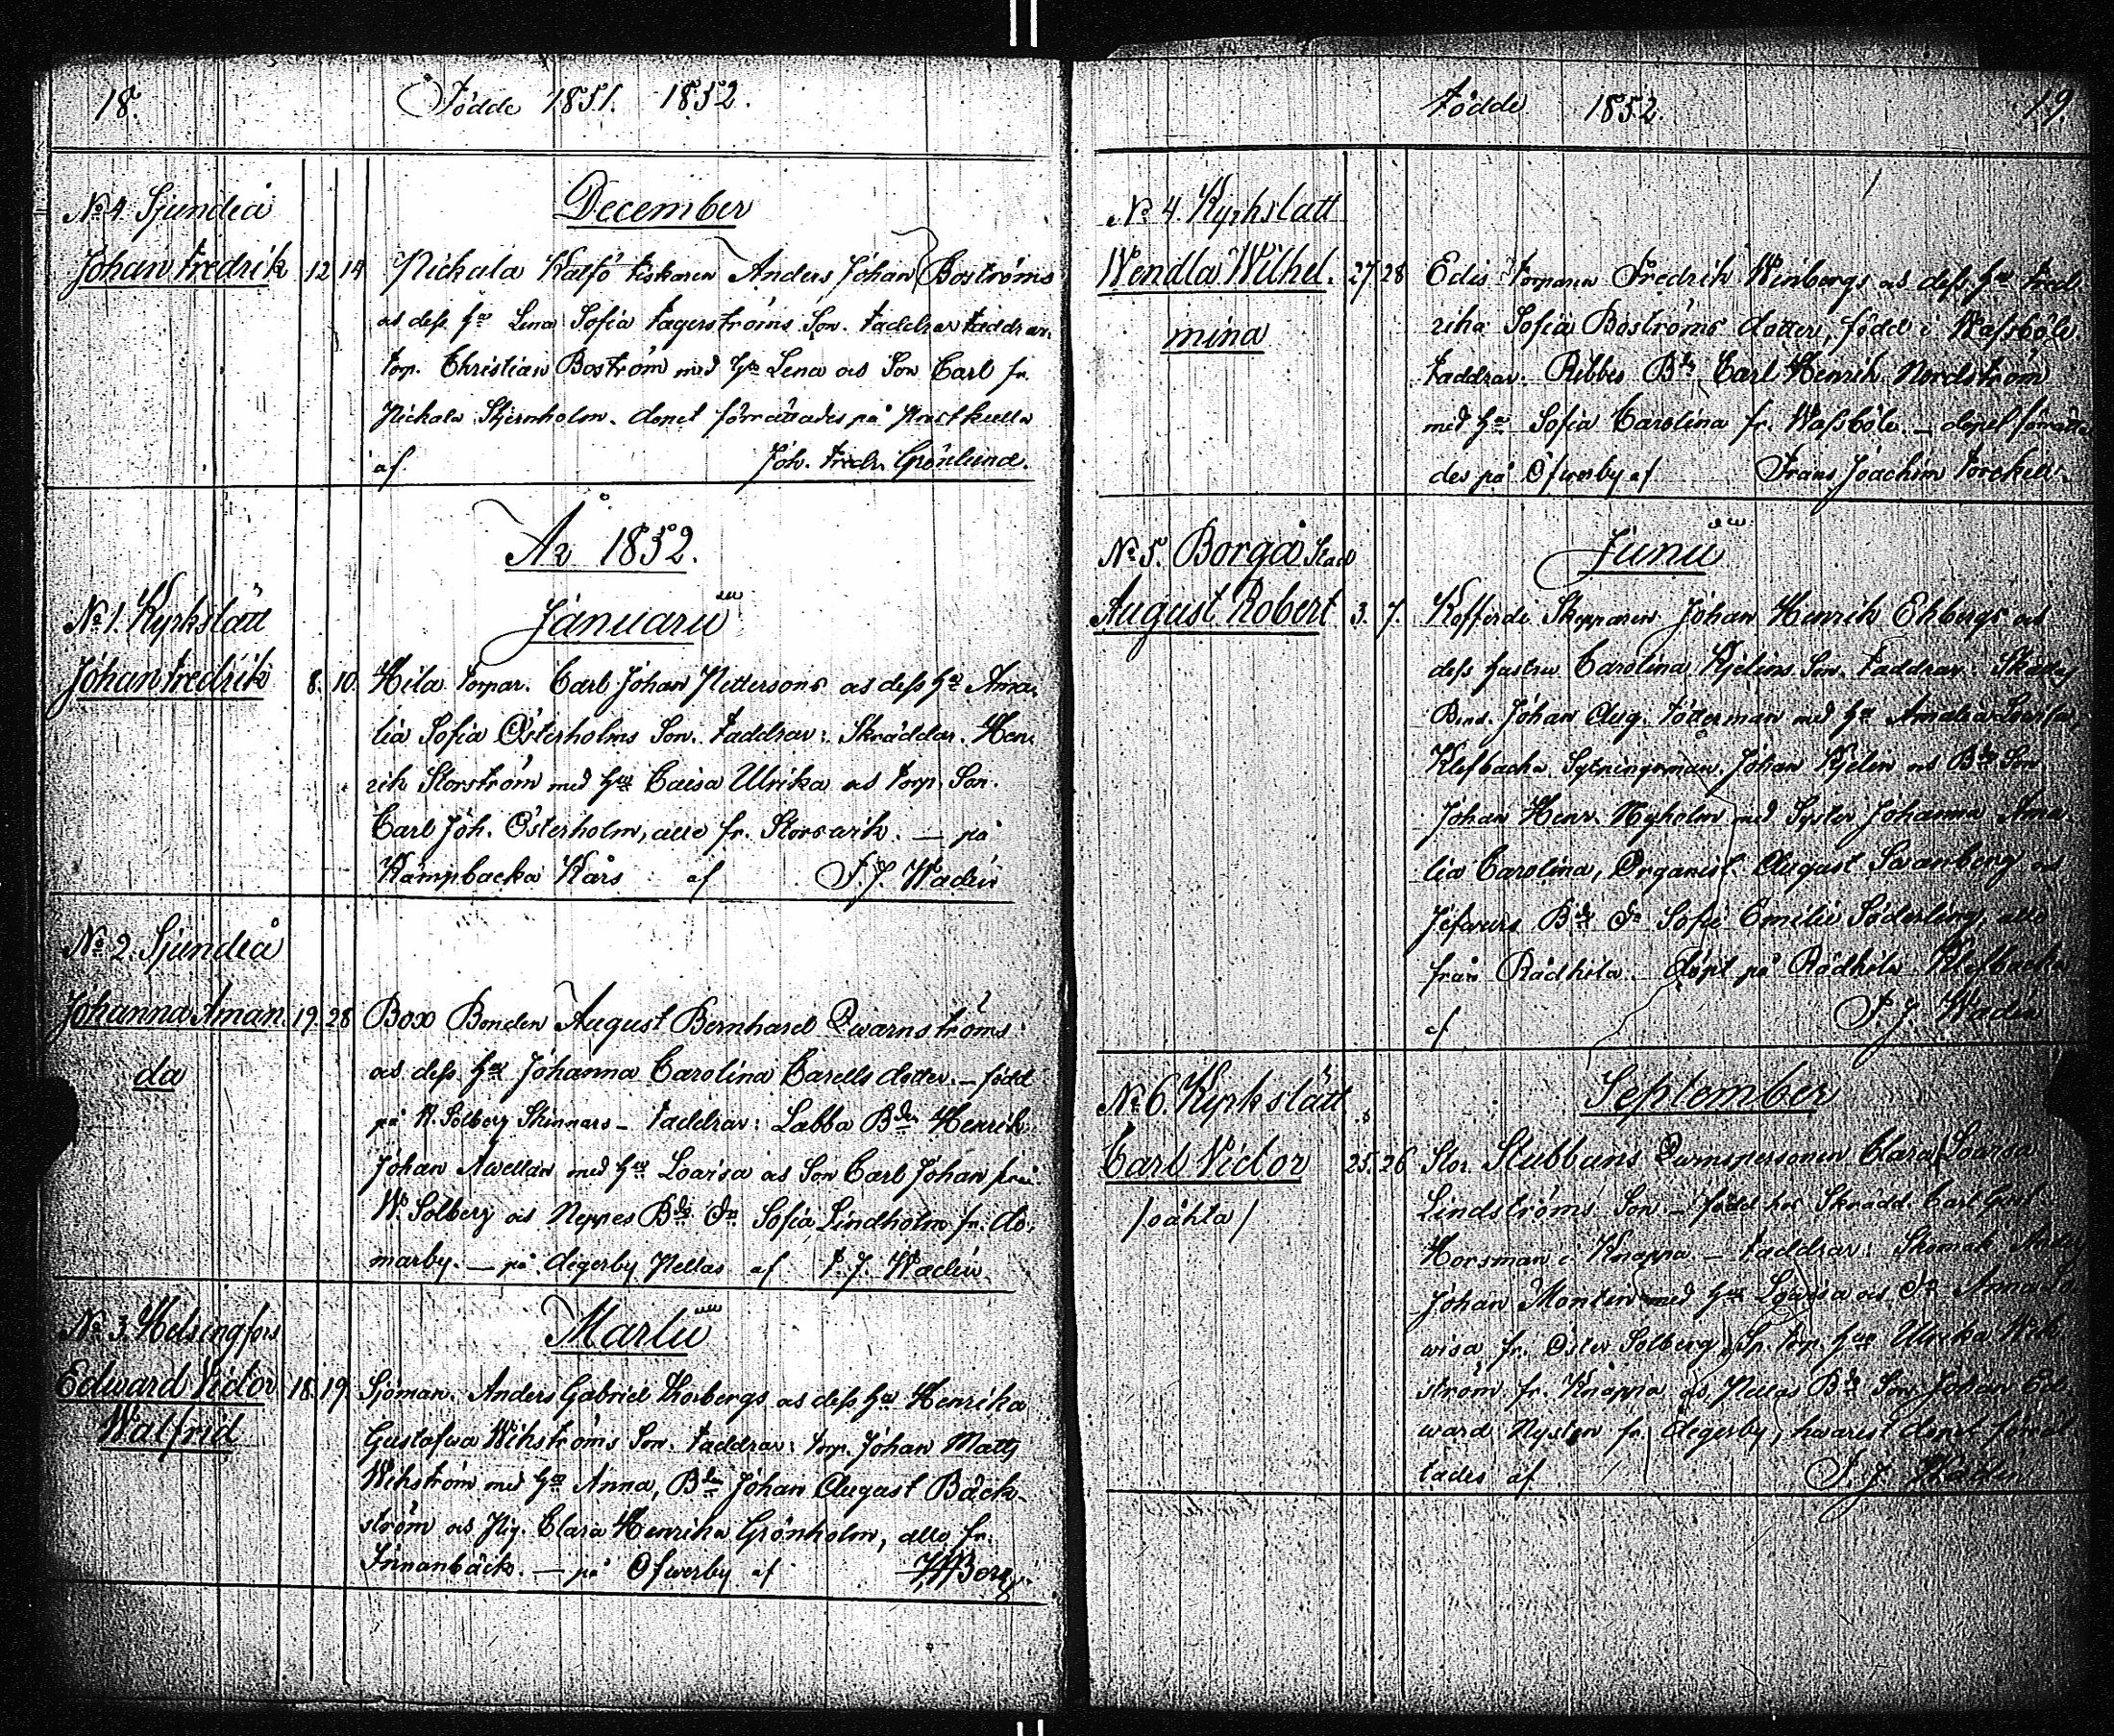 18.
Födde 1851. 1852.
No 4. Sjundeå
December
Johan Fredrik 12 14 Pickala Kalfö fiskaren Anders Johan Boströms
as dess Hu Lena Sofia Fagerströms Son. Faddrar
torp. Christian Boström med Hu Lena och Son Carl fr.
Pickala Stjernholm. dopet förrättades på
af Joh. Fredr. Grönlund.
År 1852.
No 1. Kyrkslätt
Januarii
Johan Fredrik 8. 10. Hila torpar. Carl Johan Pettersons as dess Hu Ama-
lia Sofia Österholms Son. Faddrar: Skräddar. Hen-
rik Storström med Hu Caisa Ulrika as torp. Son.
Carl Joh. Österholm, alle fr. Storsvik. — på
Kämpbacka Kårs af F. J. Wadén
No 2. Sjundeå
Johanna Aman- 19. 28 Box Bonden August Bernhard Qvarnströms
da
as dess Hu Johanna Carolina Carells dotter. — född
på W. Solberg Skinnars — Faddrar: Labba Bden Henrik
Johan Avellan med Hu Lovisa as Son Carl Johan från
W. Solberg as Neppes Bds dr Sofia Lindholm fr. Do-
marby. — på Degerby Pellas af F. J. Wadén
No 3. Helsingfors
Martii
Edward Victor 18. 19. Sjöman. Anders Gabriel Thorbergs as dess Hu Henrika
Walfrid
Gustafva Wikströms Son. Faddrar: torp. Johan Matts
Wikström med Hu Anna, Bden Johan August Bäck-
ström as Pig. Clara Henrika Grönholm, alle fr.
Innanbäck. — på Ofwerby af Borg.
Födde 1852. 19.
No 4. Kyrkslätt
Wendla Wilhel- 27 28 Edis torparen Fredrik Winbergs as dess Hu Fred-
mina
rika Sofia Boströms dotter, född i Wassböle.
Faddrar. Ribbes Bds Carl Henrik Nordström
med Hu Sofia Carolina fr. Wassböle. — dopet förrätta-
des på Ofwerby af Frans Joachim
No 5. Borgå Stad
Junii
August Robert 3. 7. Kofferdi Skepparen Johan Henrik Ekbergs as
dess hustru Carolina Kjelins Son. Faddrar.
Johan Aug. Söderman med Hu Amalia Lovisa,
Klefbacka Johan Kjelin as Bds Son
Johan Henr. Nyholm med Syster Johanna Ama-
lia Carolina, Organist. August Svanberg as
Bds dr Sofie Emilie Söderling, alle
från Rådkila. döpt på Rådkila Klefbacka
af F. J. Wadén
No 6. Kyrkslätt
September
Carl Victor 25. 26 Stor. Stubbans Qvinspersonen Clara Lovisa
/oäkta/
Lindströms Son — född hos Skrädd. Carl Gust
Horsman i Knappa. — Faddrar: Skomak.
Johan Montin med Hu Lovisa as dr Anna Lo-
wisa fr. Öster Solberg, Sp. torp. Hu Ulrika Wik-
ström fr. Knappa as Pellas Bds Son Johan Ed-
ward Nysten fr. Degerby, hwarest dopet förrät-
tades af F. J. Wadén